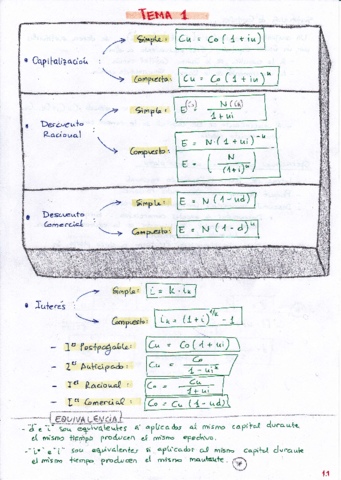 TEMA 1
• Capitalización
Simple: Cu = Co (1 + iu)
Compuesta: Cu = Co (1 + iu)^u
• Descuento Racional
Simple: E(Co) = N(Cu) / 1 + ui
Compuesto: E = N · (1 + ui)^-u
E = (N / (1+i)^u)
• Descuento Comercial
Simple: E = N (1 - ud)
Compuesto: E = N (1 - d)^u
• Interés
Simple: i = k · ik
Compuesto: ik = (1 + i)^1/k - 1
- Iº Postpagable: Cu = Co (1 + ui)
- Iº Anticipado: Cu = Co / 1 - ui*
- Iº Racional: Co = Cu / 1 + ui
- Iº Comercial: Co = Cu (1 - ud)
EQUIVALENCIA
- "d e i" son equivalentes si aplicados al mismo capital durante
el mismo tiempo producen el mismo efectivo.
- "i* e i" son equivalentes si aplicados al mismo capital durante
el mismo tiempo producen el mismo montante.
1.1